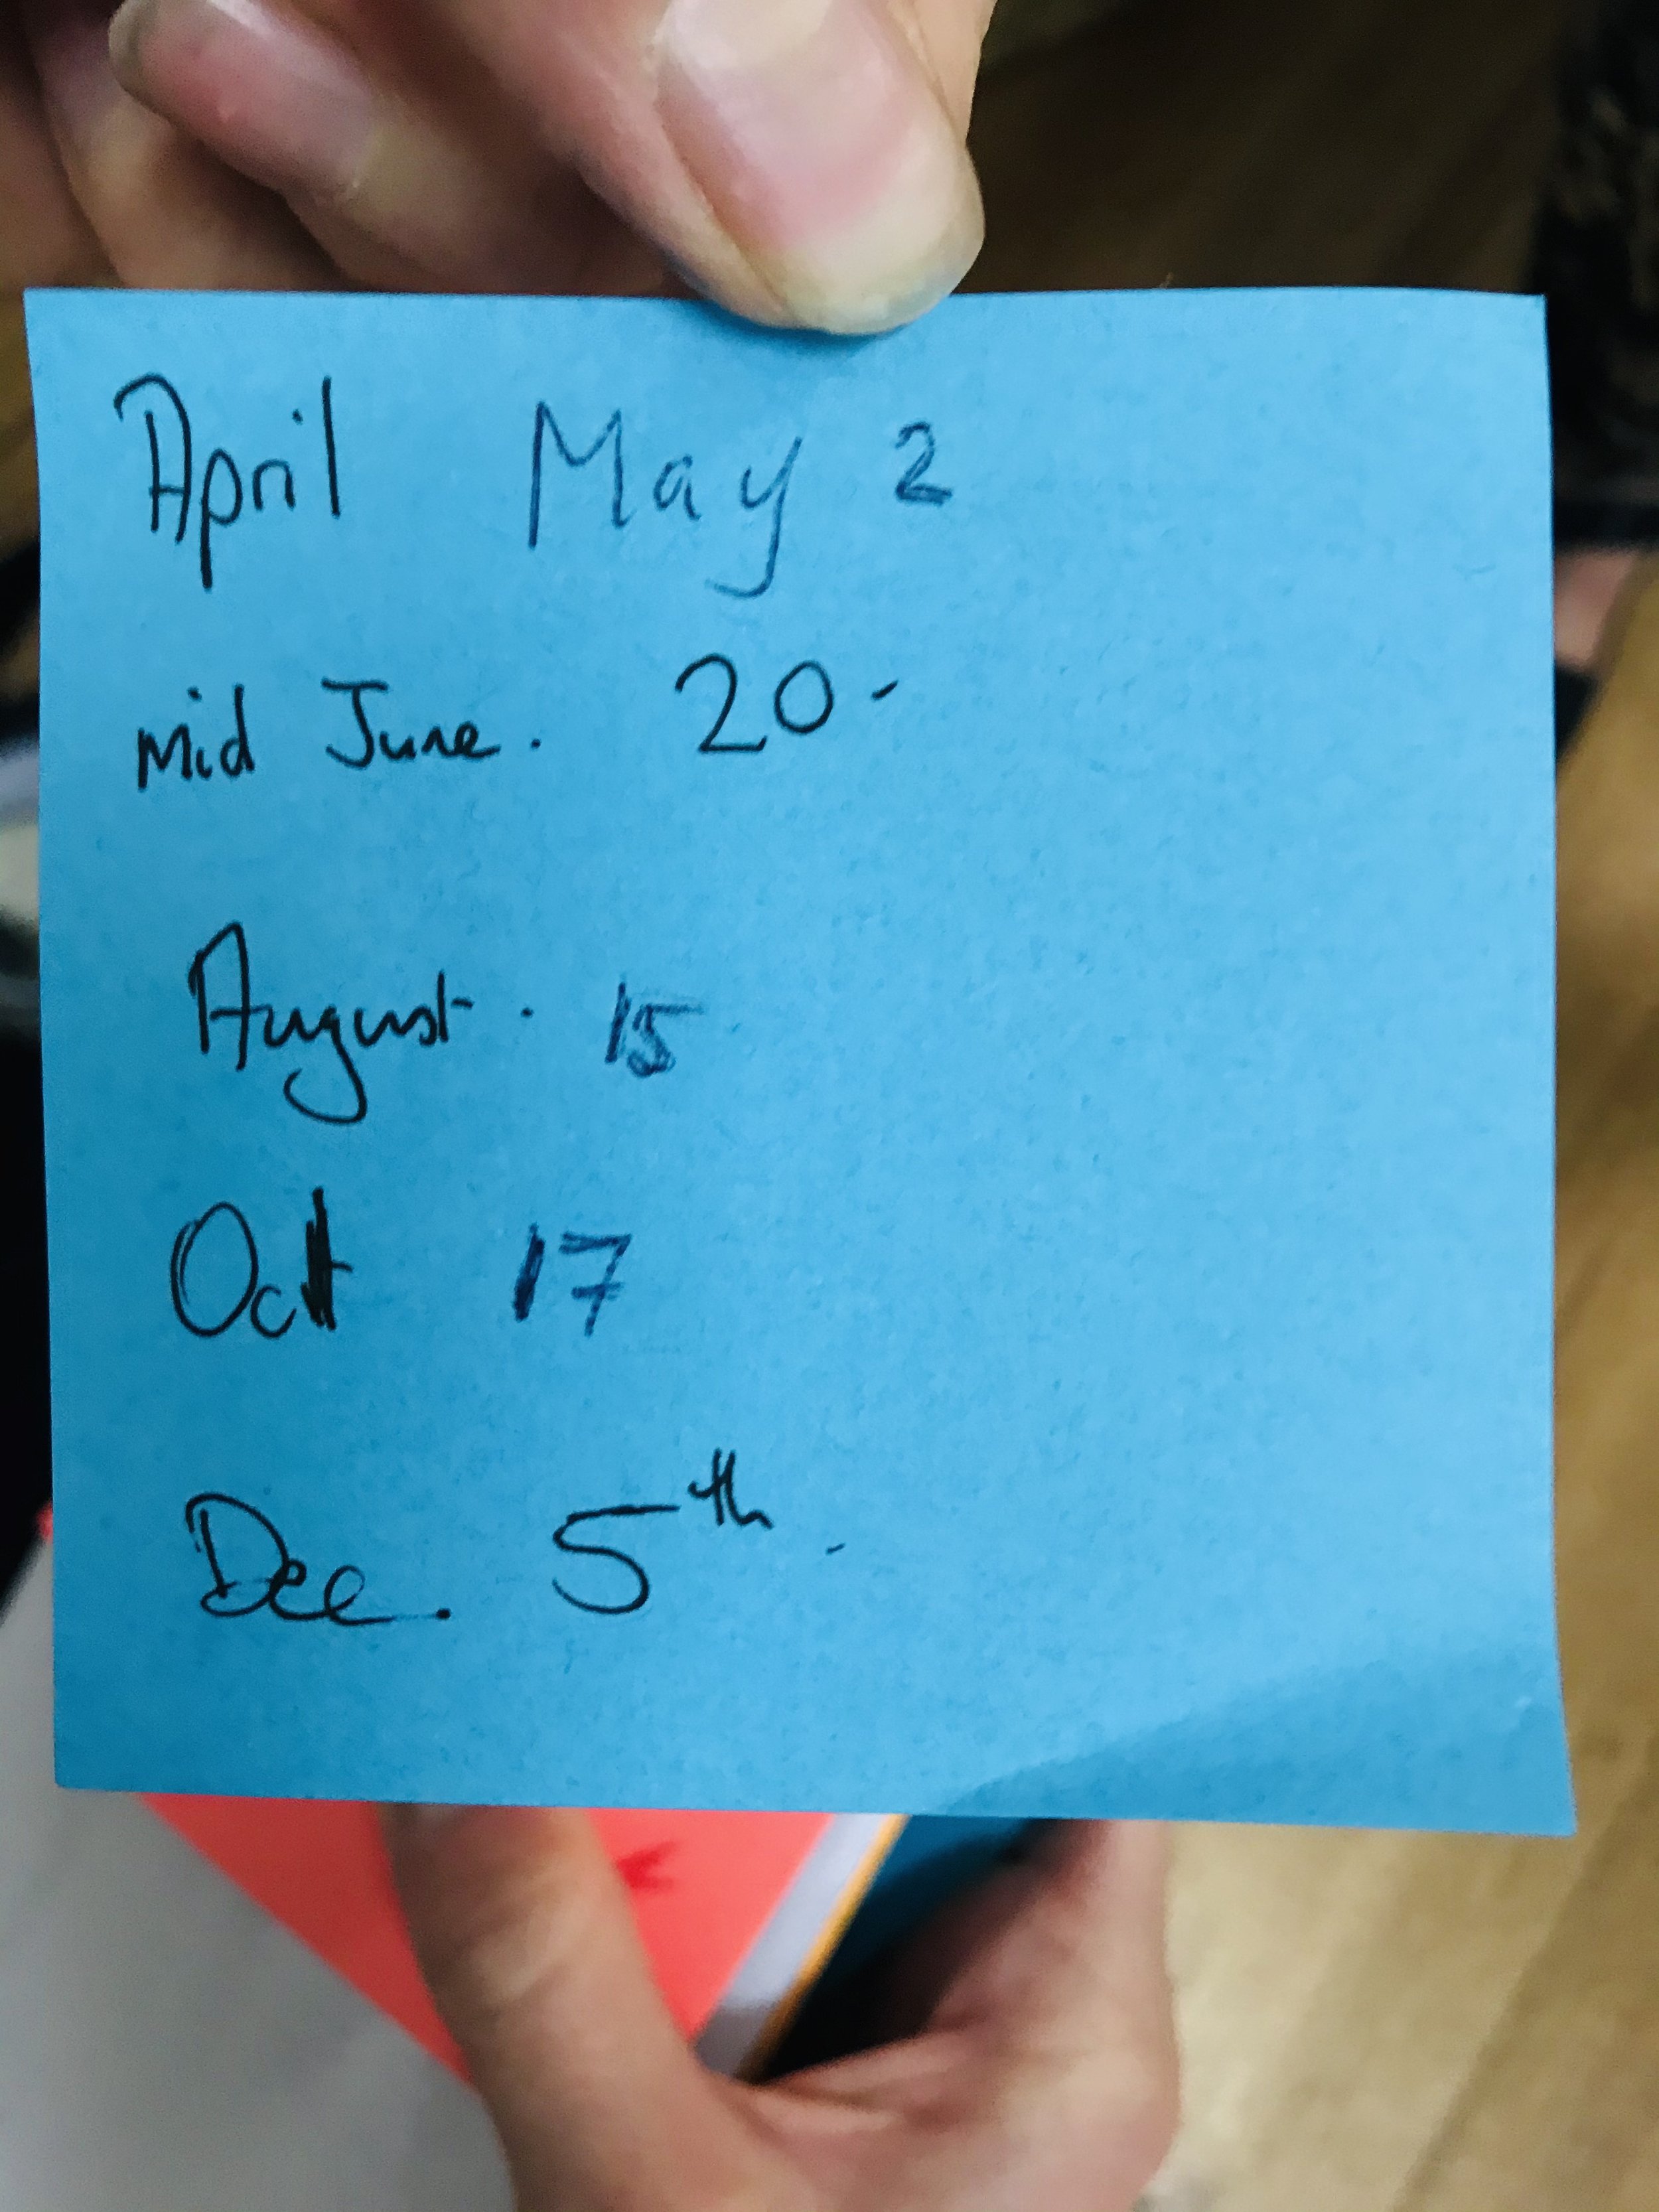 April May 2
mid June. 20-
August. 15
Oct 17
Dec. 5th.